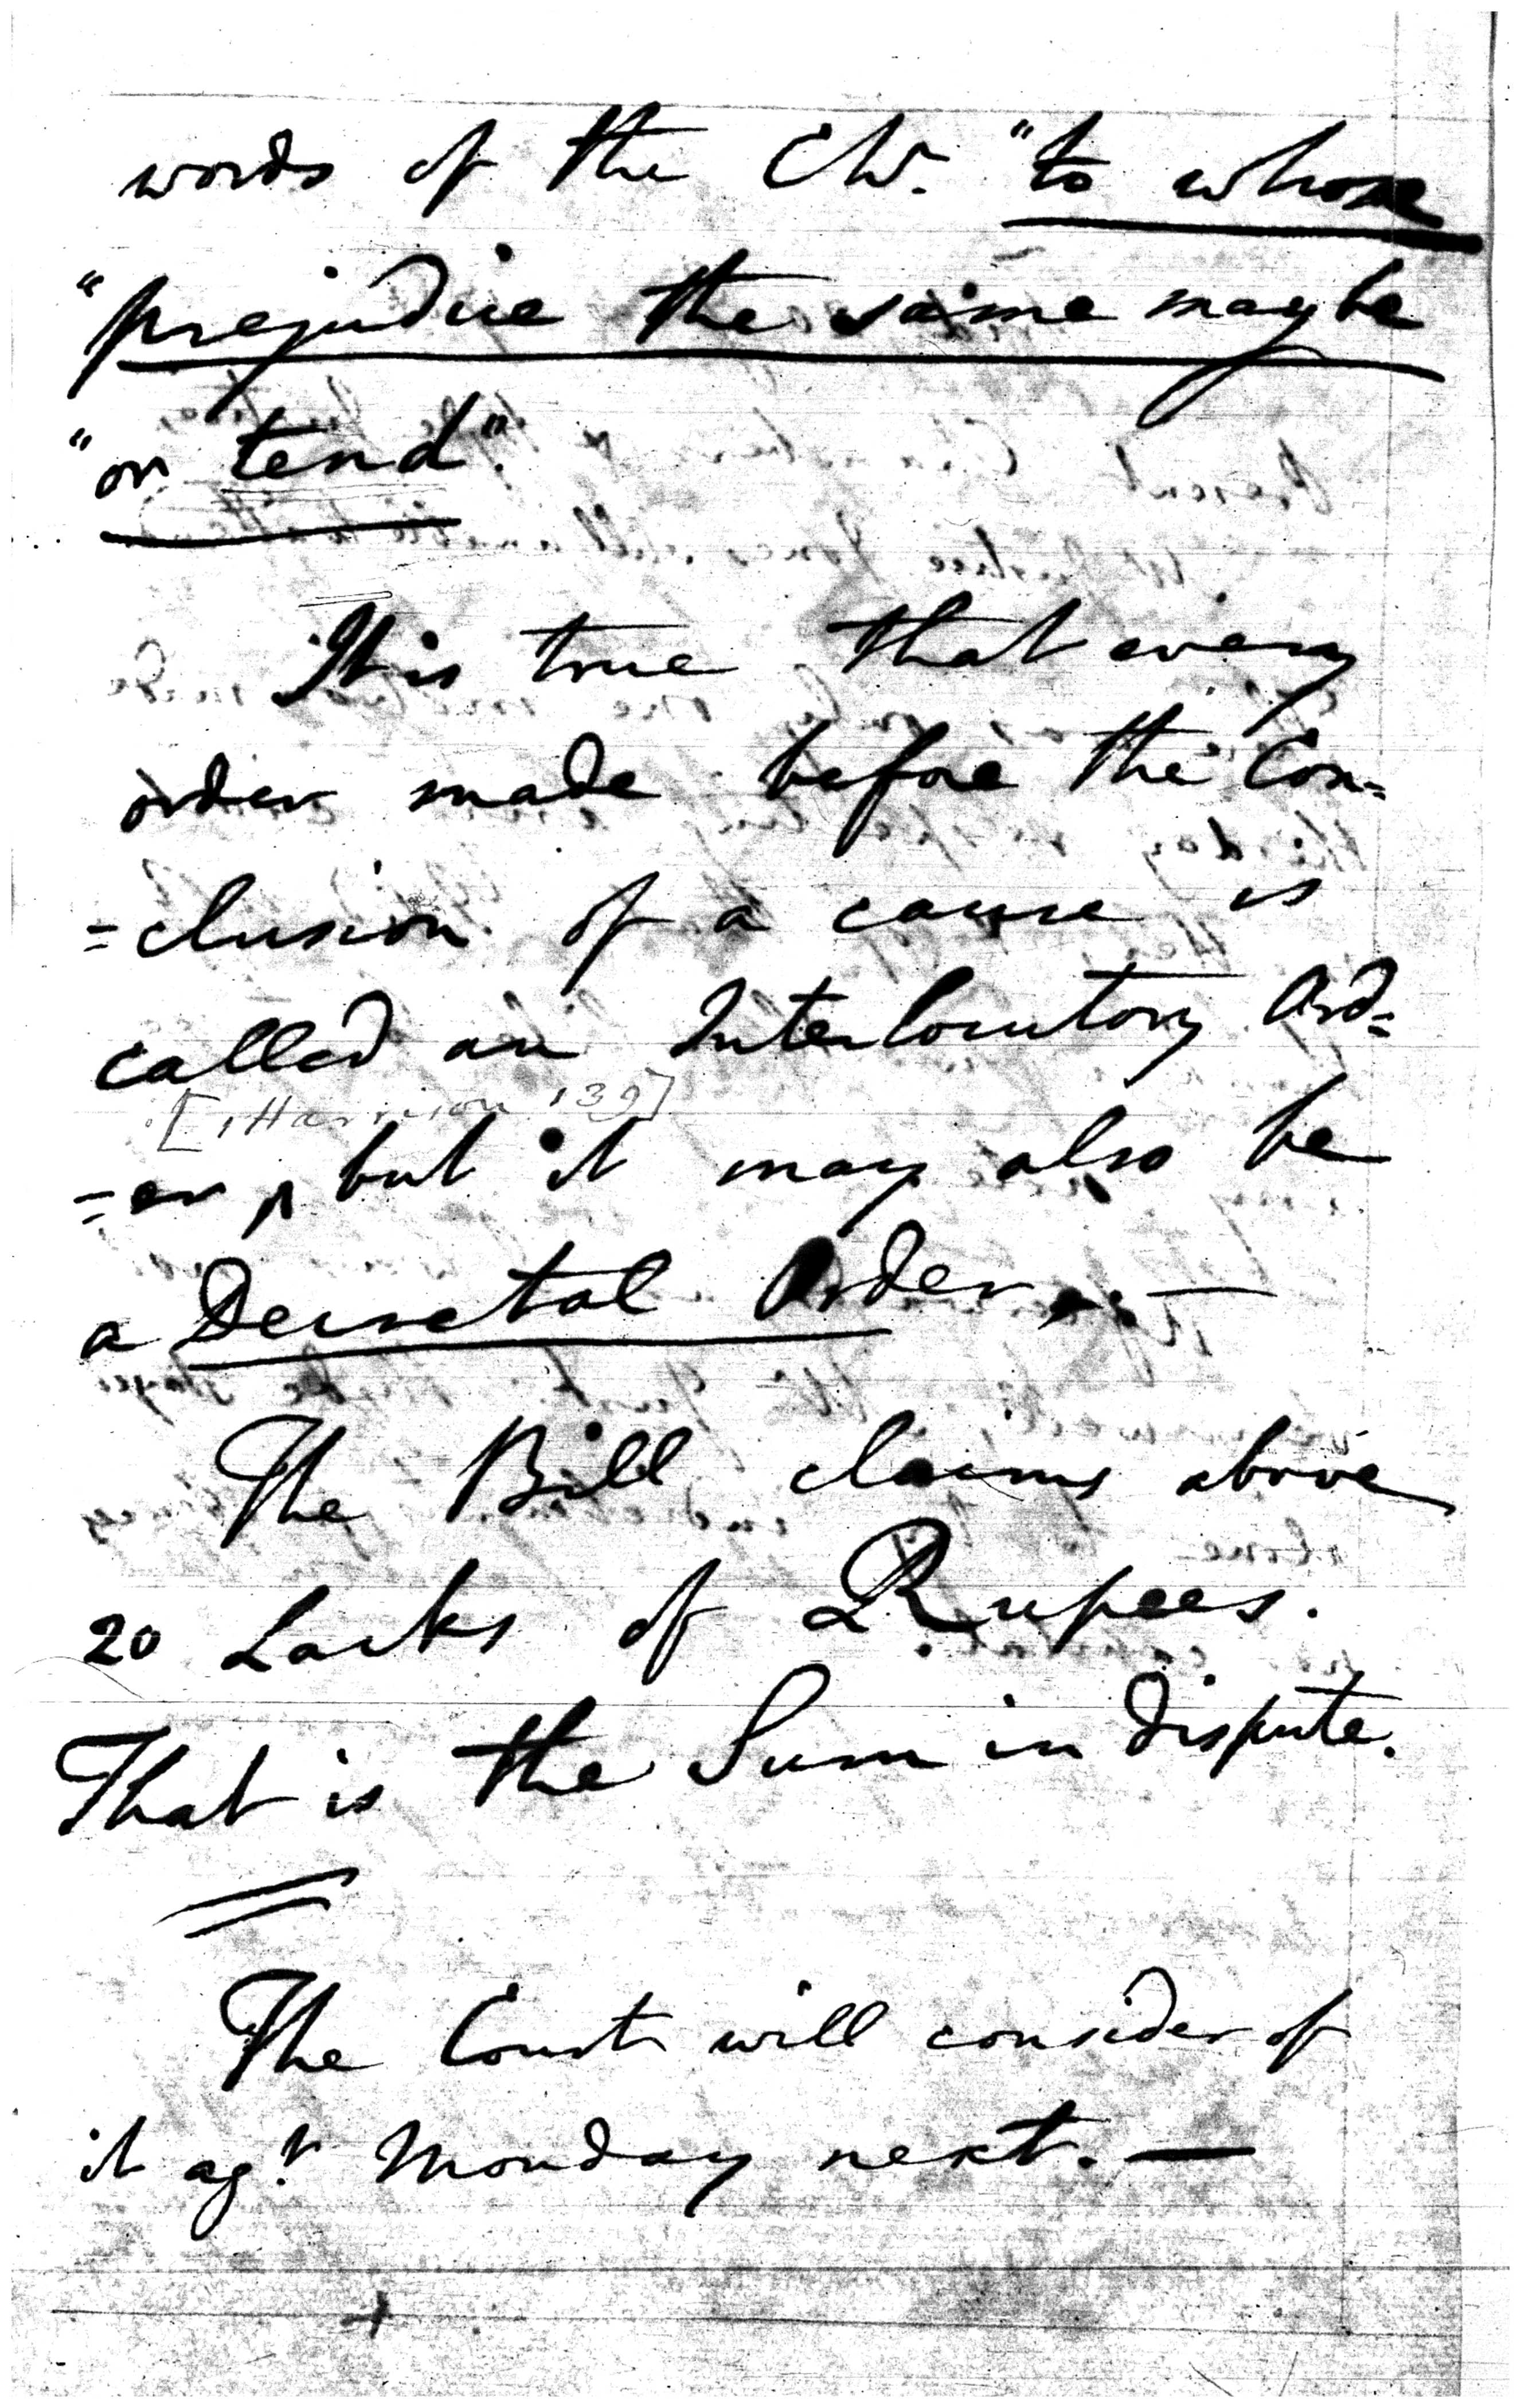 words of the Chr. "to whose
"prejudice the same may be
"or tend".
It is true that every
order made before the Con=
=clusion of a cause is
called an Interlocutory Ord=
[1 Harrison 139]
=er ‸ but it may also be
a Decretal Order. —
The Bill claims above
20 Lacks of Rupees.
That is the Sum in dispute.
The Court will consider of
it agt. Monday next. —